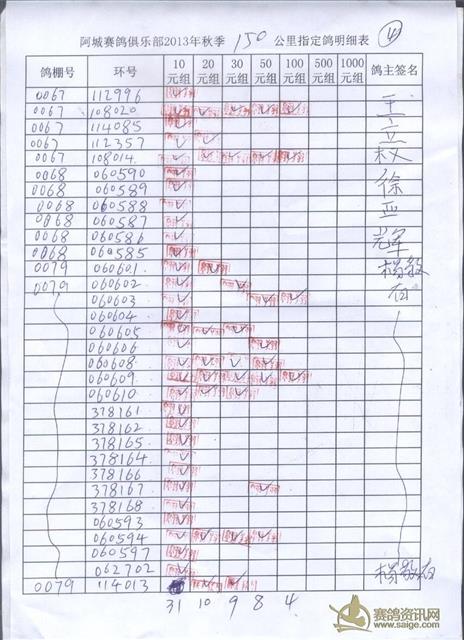 阿城赛鸽俱乐部2013年秋季 150 公里指定鸽明细表 ④
鸽棚号 环号 10元组 20元组 30元组 50元组 100元组 500元组 1000元组 鸽主签名
0067 112996
0067 108020 王
0067 114085
0067 112357 立
0067 108014 权
0068 060590
0068 060589 徐
0068 060588 亚
0068 060587
0068 060586
0068 060585
0079 060601
0079 060602
060603
060604
060605
060606
060608
060609
060610
378161
378162
378165
378164
378166
378167
378168
060593
060594
060597
062702
0079 114013
31 10 9 8 4
赛鸽资讯网
www.saige.com